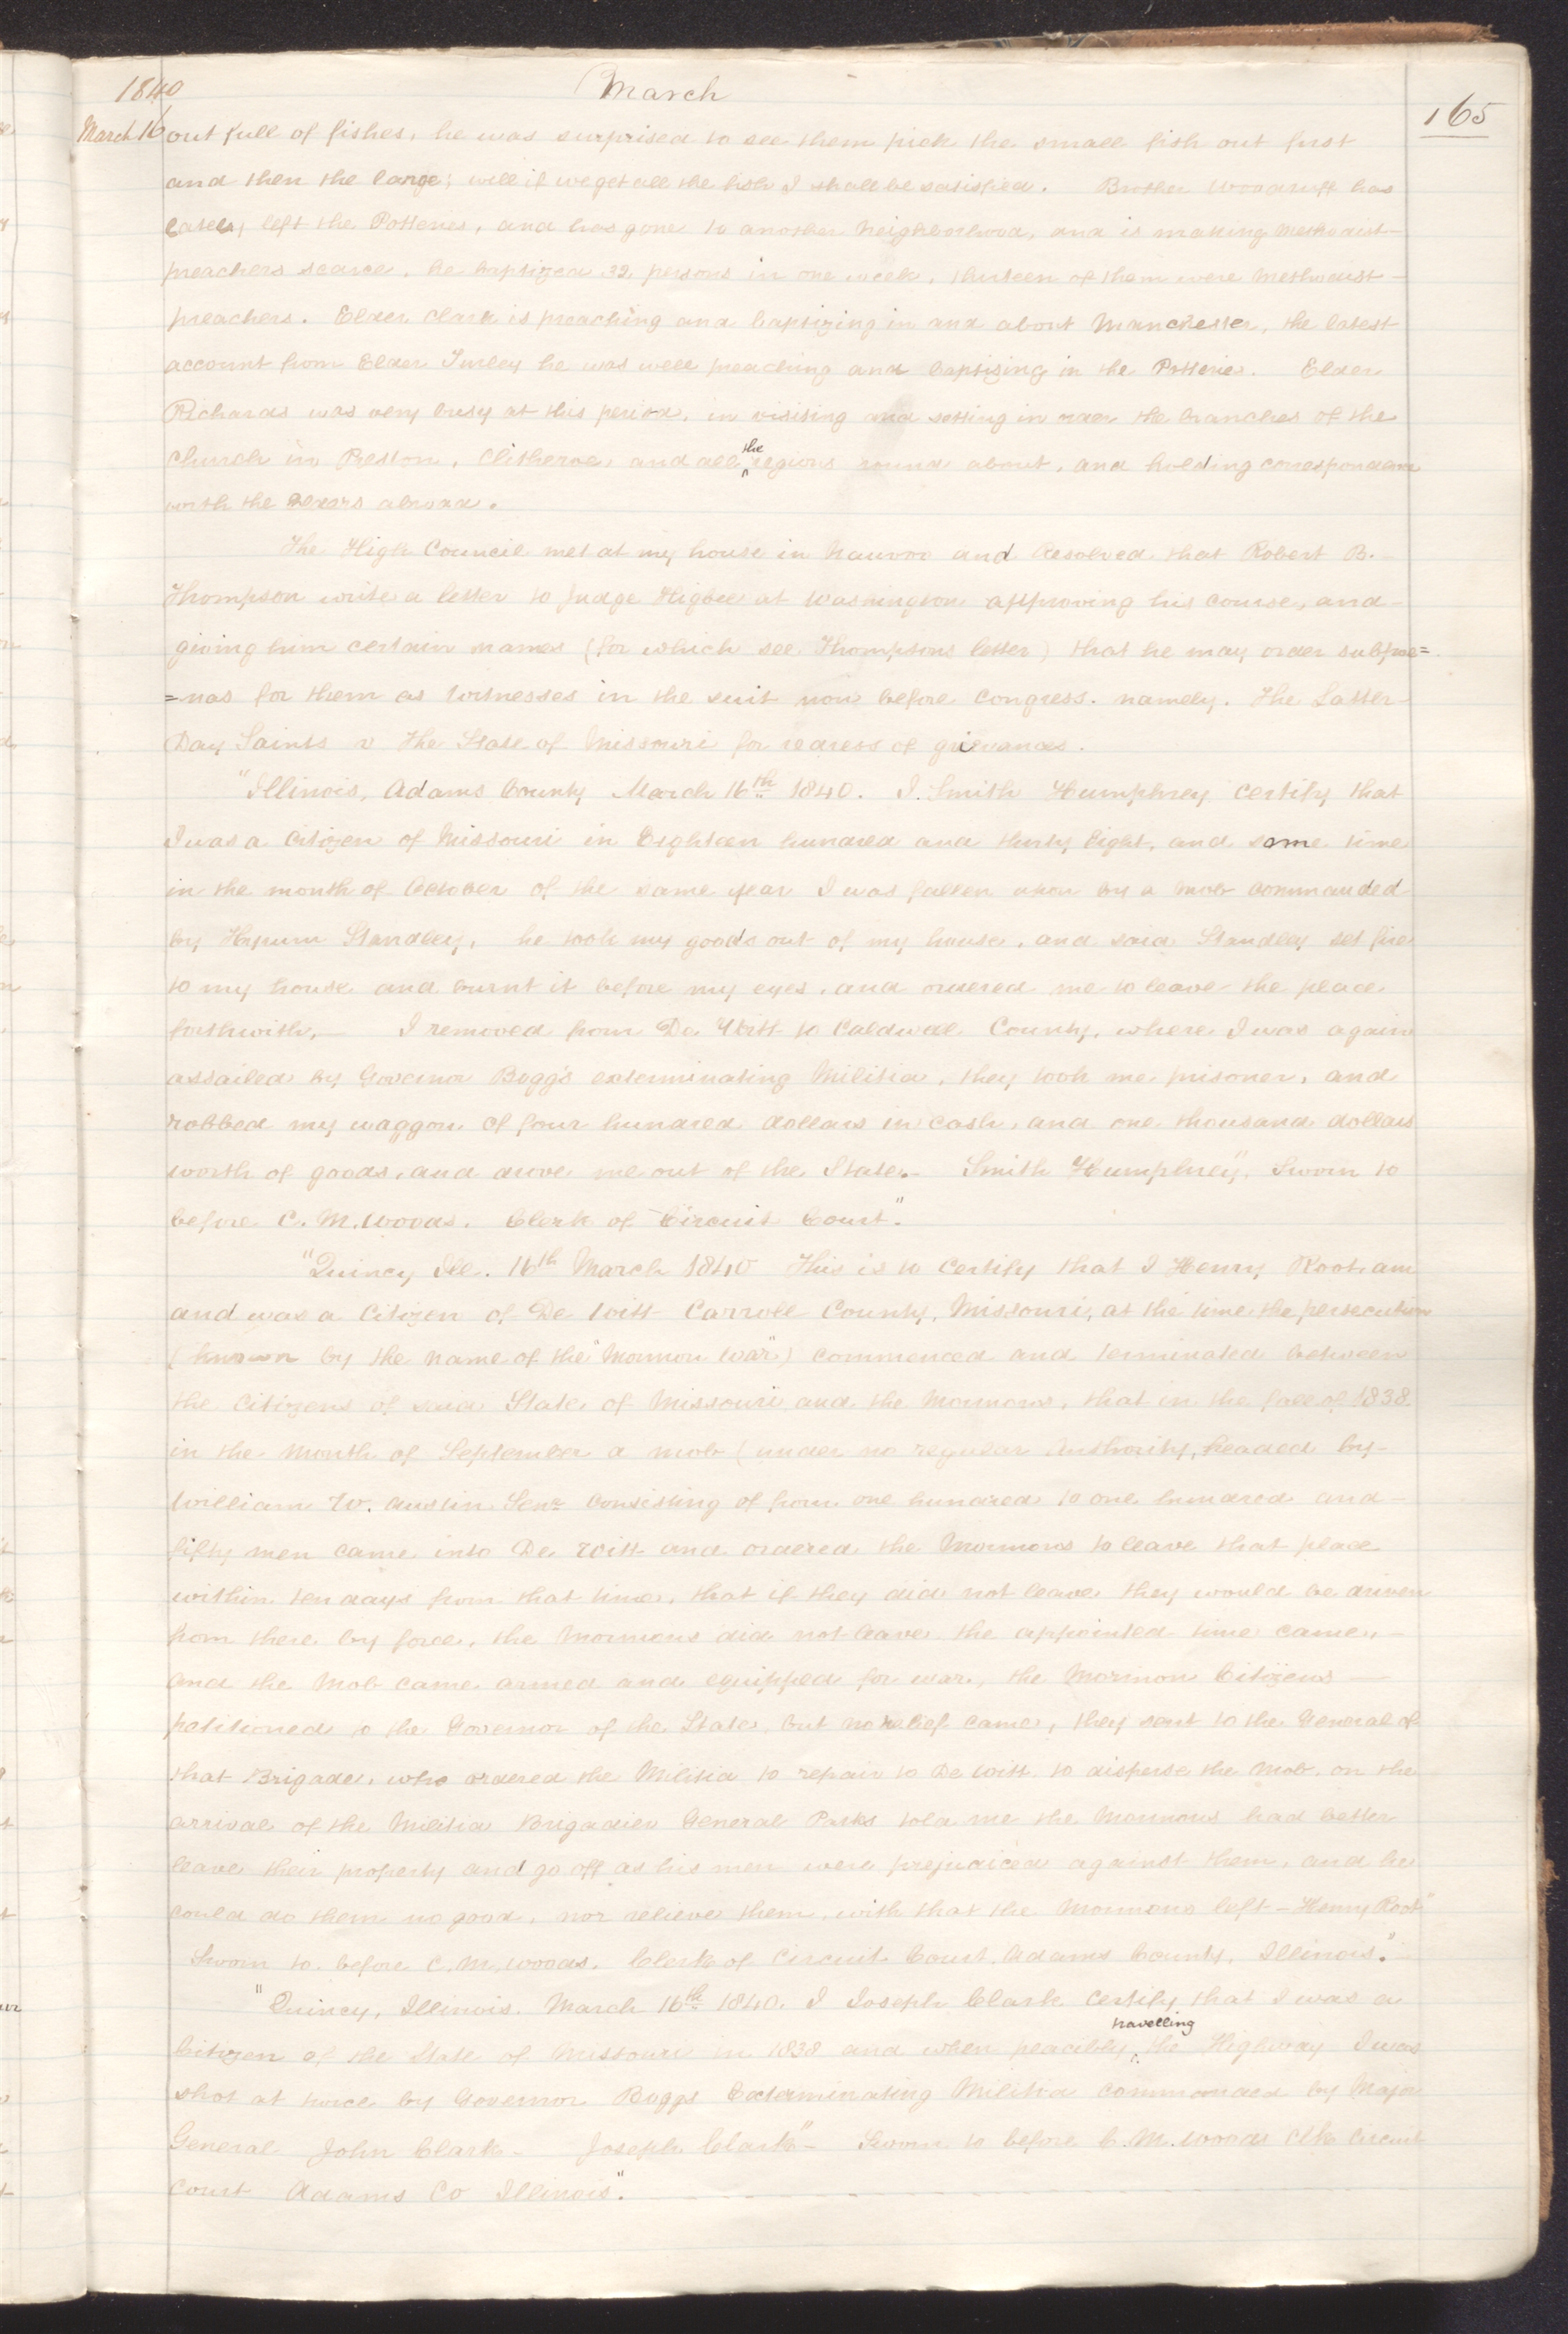 1840 March 165
March 16 out full of fishes, he was surprised to see them pick the small fish out first
and then the large; well if we get all the fish I shall be satisfied. Brother Woodruff has
lately left the Potteries, and has gone to another neighborhood, and is making Methodist
preachers scarce, he baptized 32 persons in one week, thirteen of them were Methodist
preachers. Elder Clark is preaching and baptizing in and about Manchester, the latest
account from Elder Turley he was well preaching and baptizing in the Potteries. Elder
Richards was very busy at this period, in visiting and setting in order the branches of the
Church in Preston, Clitheroe, and all the regions round about, and holding correspondence
with the Elders abroad.
The High Council met at my house in Nauvoo and Resolved that Robert B.
Thompson write a letter to Judge Higbee at Washington approving his course, and
giving him certain names (for which see Thompsons letter) that he may order subpoe=
=nas for them as Witnesses in the suit now before Congress. namely. The Latter
Day Saints v The State of Missouri for redress of grievances.
"Illinois, Adams County March 16th 1840. I. Smith Humphrey certify that
I was a citizen of Missouri in Eighteen hundred and thirty Eight, and some time
in the month of October of the same year I was fallen upon by a Mob commanded
by Hyrum Standley, he took my goods out of my house, and said Standley set fire
to my house and burnt it before my eyes, and ordered me to leave the place
forthwith, — I removed from De Witt to Caldwell County, where I was again
assailed by Governor Boggs exterminating Militia, they took me prisoner, and
robbed my waggon of four hundred dollars in cash, and one thousand dollars
worth of goods, and drove me out of the State. Smith Humphrey", Sworn to
before C. M. Woods. Clerk of Circuit Court".
"Quincy Ill. 16th March 1840 This is to Certify that I Henry Root am
and was a Citizen of De Witt Carroll County, Missouri, at the time the persecution
(known by the name of the "Mormon War") commenced and terminated between
the Citizens of said State of Missouri and the Mormons, that in the fall of 1838.
in the Month of September a mob (under no regular Authority, headed by
William W. Austin Senr consisting of from one hundred to one hundred and
fifty men came into De Witt and ordered the Mormons to leave that place
within ten days from that time, that if they did not leave they would be driven
from there by force, the Mormons did not leave the appointed time came,
and the Mob came armed and equipped for war, the Mormon Citizens —
petitioned to the Governor of the State, but no relief came, they sent to the General of
that Brigade, who ordered the Militia to repair to De Witt to disperse the Mob. on the
arrival of the Militia Brigadier General Parks told me the Mormons had better
leave their property and go off as his men were prejudiced against them, and he
could do them no good, nor relieve them, with that the Mormons left – Henry Root"
Sworn to before C. M. Woods. Clerk of Circuit Court. Adams County, Illinois".
"Quincy, Illinois. March 16th 1840. I Joseph Clark certify that I was a
Citizen of the State of Missouri in 1838 and when peacibly travelling the Highway I was
shot at twice by Governor Boggs Exterminating Militia commanded by Major
General John Clark – Joseph Clark" – Sworn to before C. M. Woods Clk Circuit
Court Adams Co Illinois".